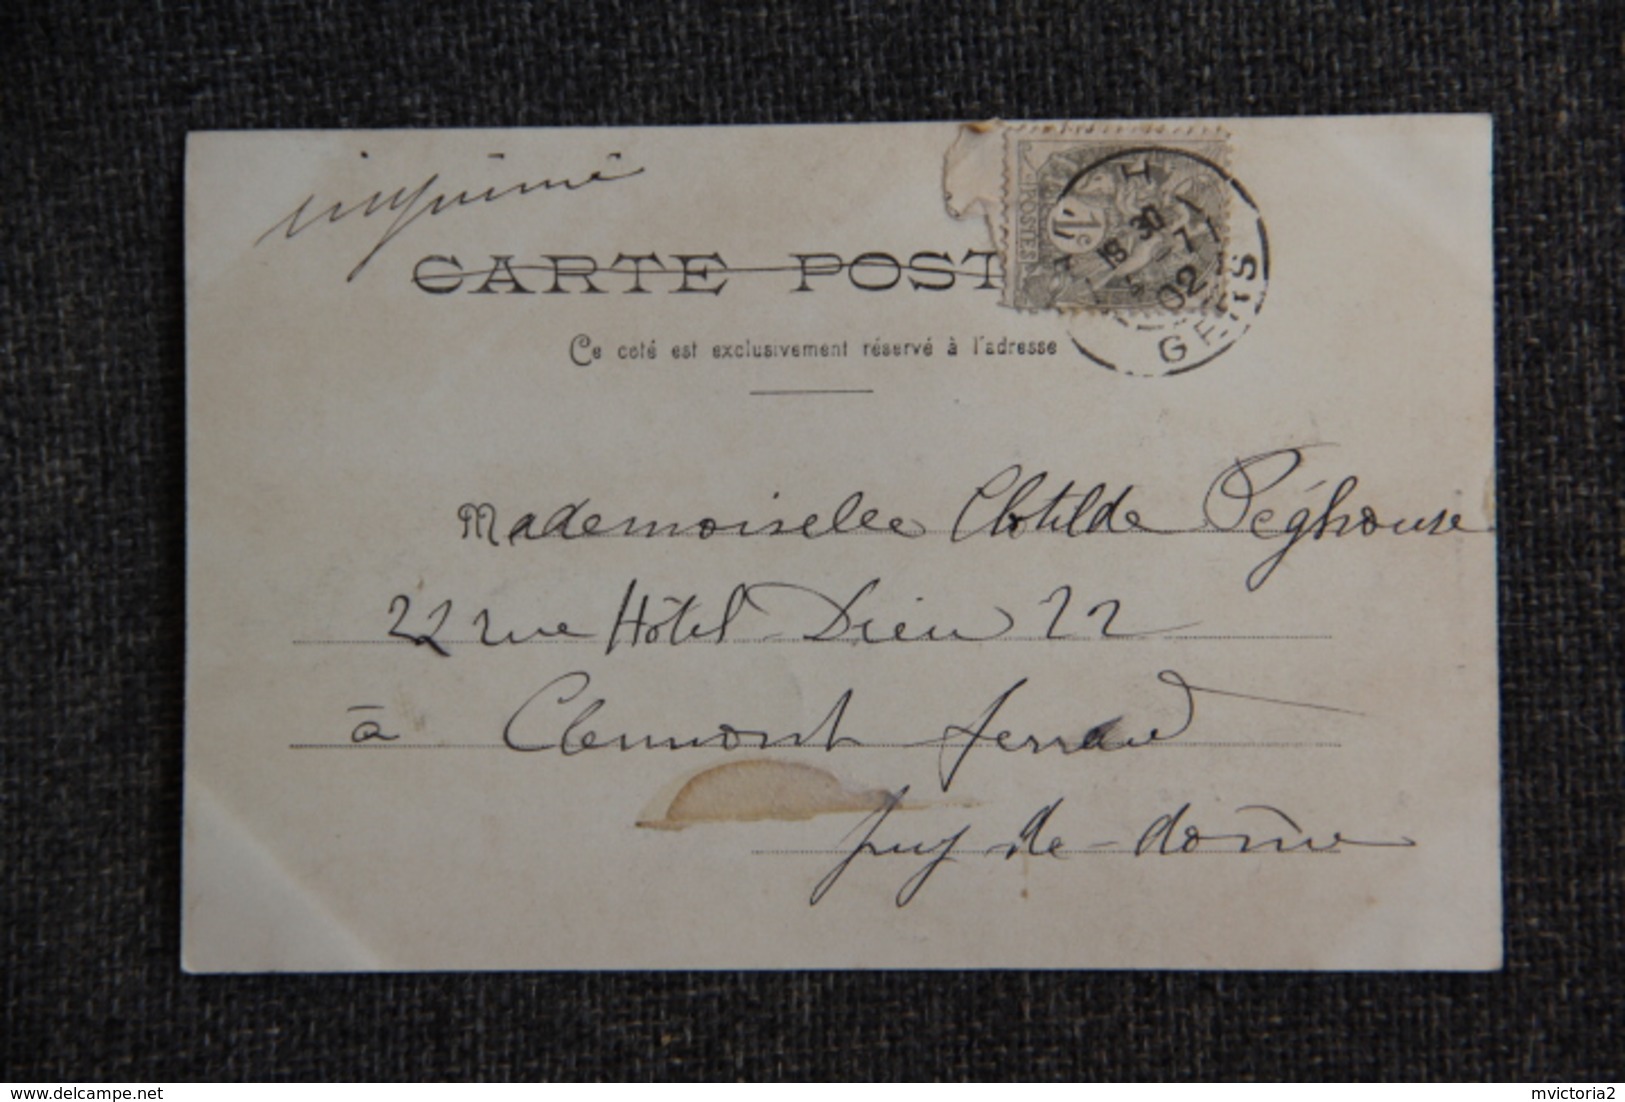 imprimé
CARTE POST
Ce coté est exclusivement réservé à l'adresse
POSTES
1c
18 30
7
02
GERS
Mademoiselle Clotilde Péghouse
22 rue Hôtel-Dieu 22
à Clermont ferrand
puy-de-dôme
delcampe.net
mvictoria2